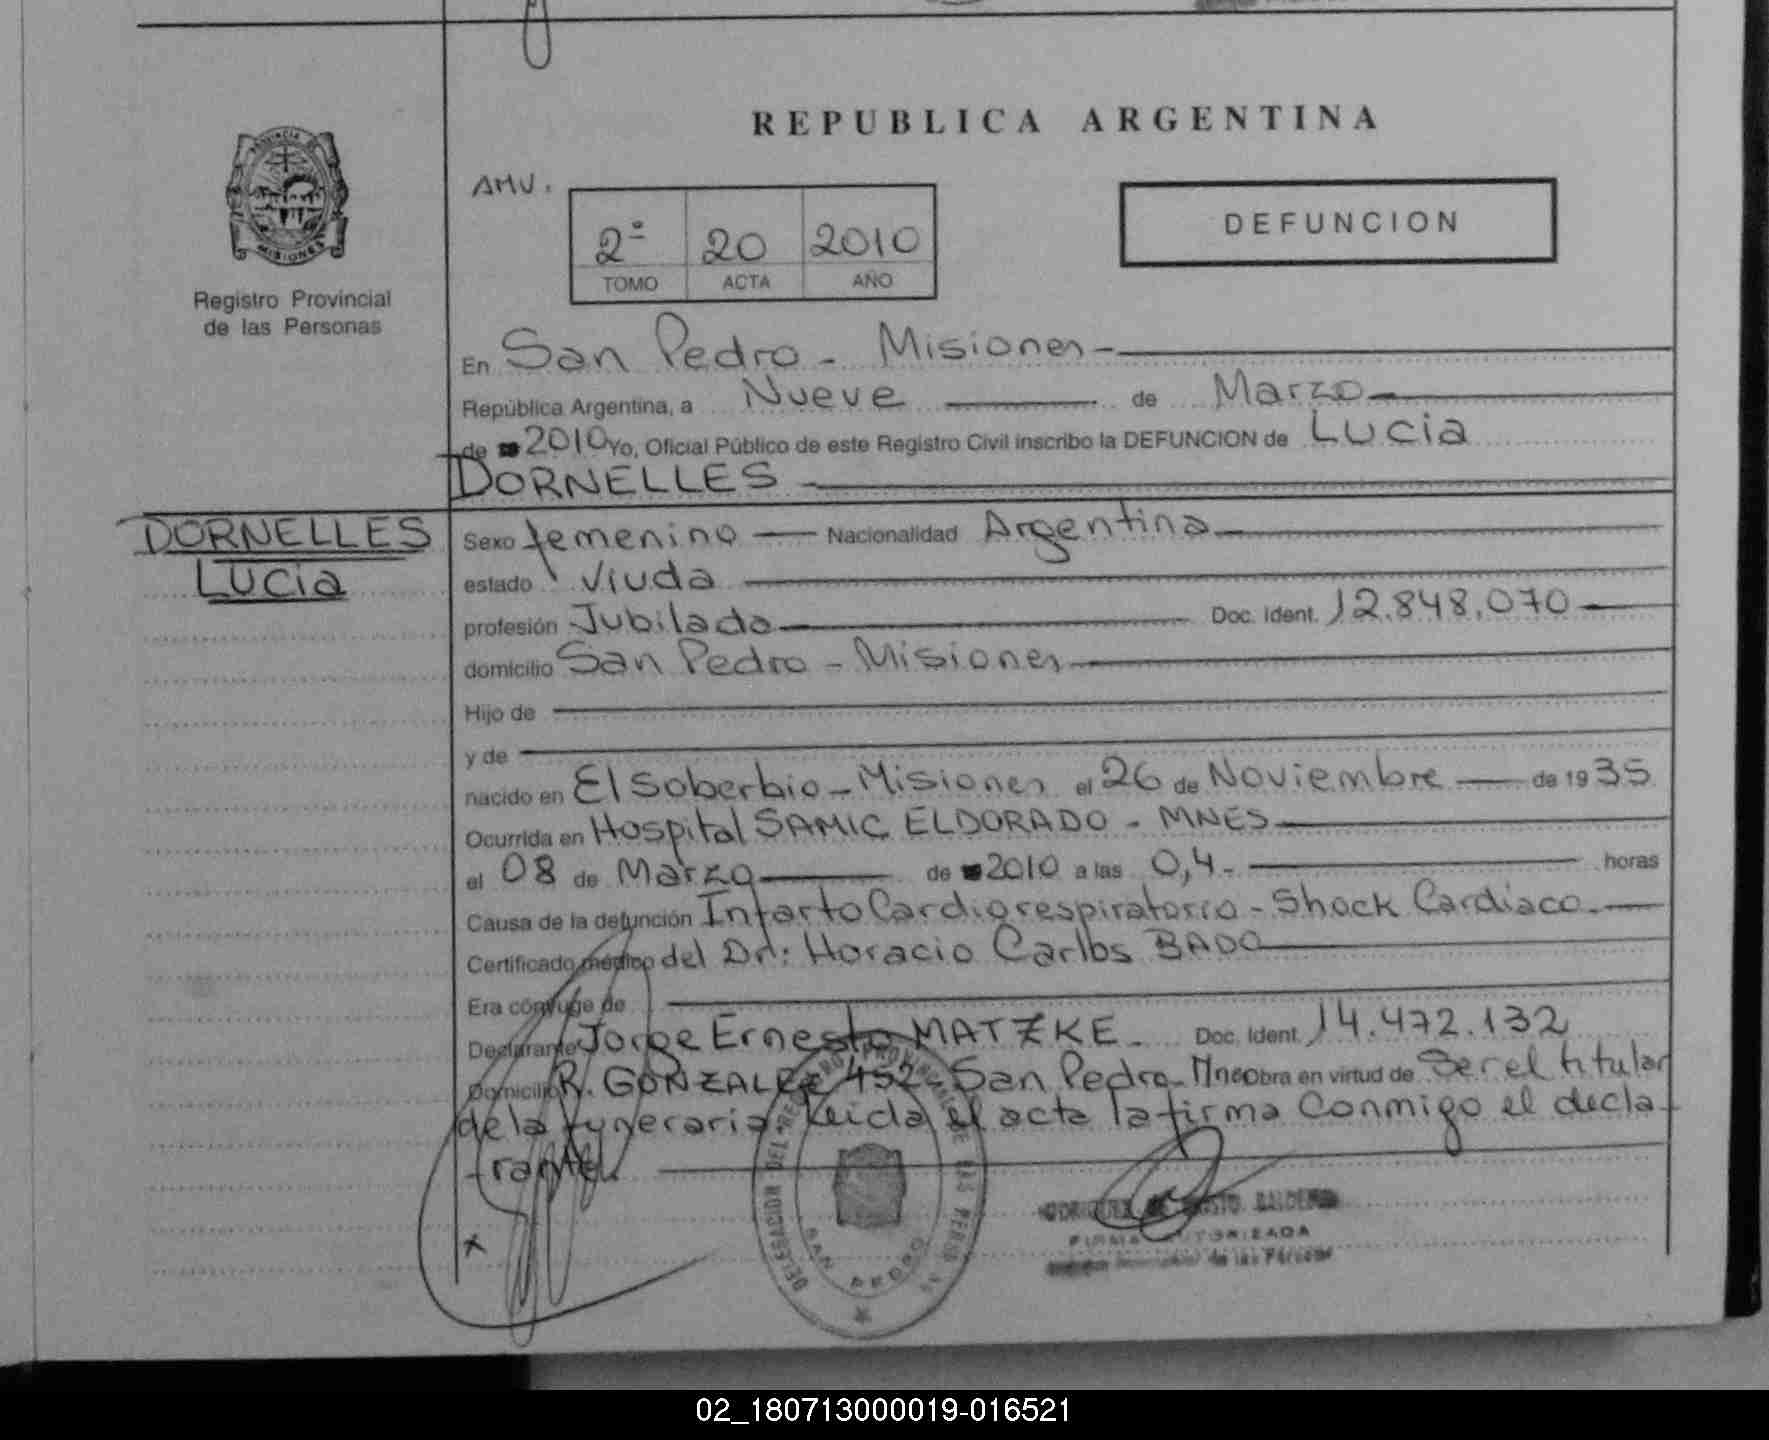 REPUBLICA ARGENTINA
AMU.
2º 20 2010
TOMO ACTA AÑO
DEFUNCION
PROVINCIA DE
MISIONES
Registro Provincial
de las Personas
En San Pedro - Misiones -
República Argentina, a Nueve de Marzo
de 2010 Yo, Oficial Público de este Registro Civil inscribo la DEFUNCION de Lucia
DORNELLES
DORNELLES
Lucia
Sexo femenino Nacionalidad Argentina
estado Viuda
profesión Jubilada Doc. Ident. 12.848.070
domicilio San Pedro - Misiones
Hijo de
y de
nacido en El Soberbio - Misiones el 26 de Noviembre de 1935
Ocurrida en Hospital SAMIC ELDORADO - MNES
el 08 de Marzo de 2010 a las 0,4. horas
Causa de la defunción Infarto Cardiorespiratorio - Shock Cardiaco.
Certificado médico del Dr: Horacio Carlos BADO
Era cónyuge de
Declarante Jorge Ernesto MATZKE. Doc. Ident. 14.472.132
Domicilio R. GONZALEZ 452 - San Pedro - Mnes Obra en virtud de Ser el titular
de la funeraria. Leida el acta la firma Conmigo el decla-
-rante.
x
DELEGACION DEL REGISTRO PROVINCIAL DE LAS PERSONAS
SAN PEDRO
FIRMA AUTORIZADA
de las Personas
02_180713000019-016521